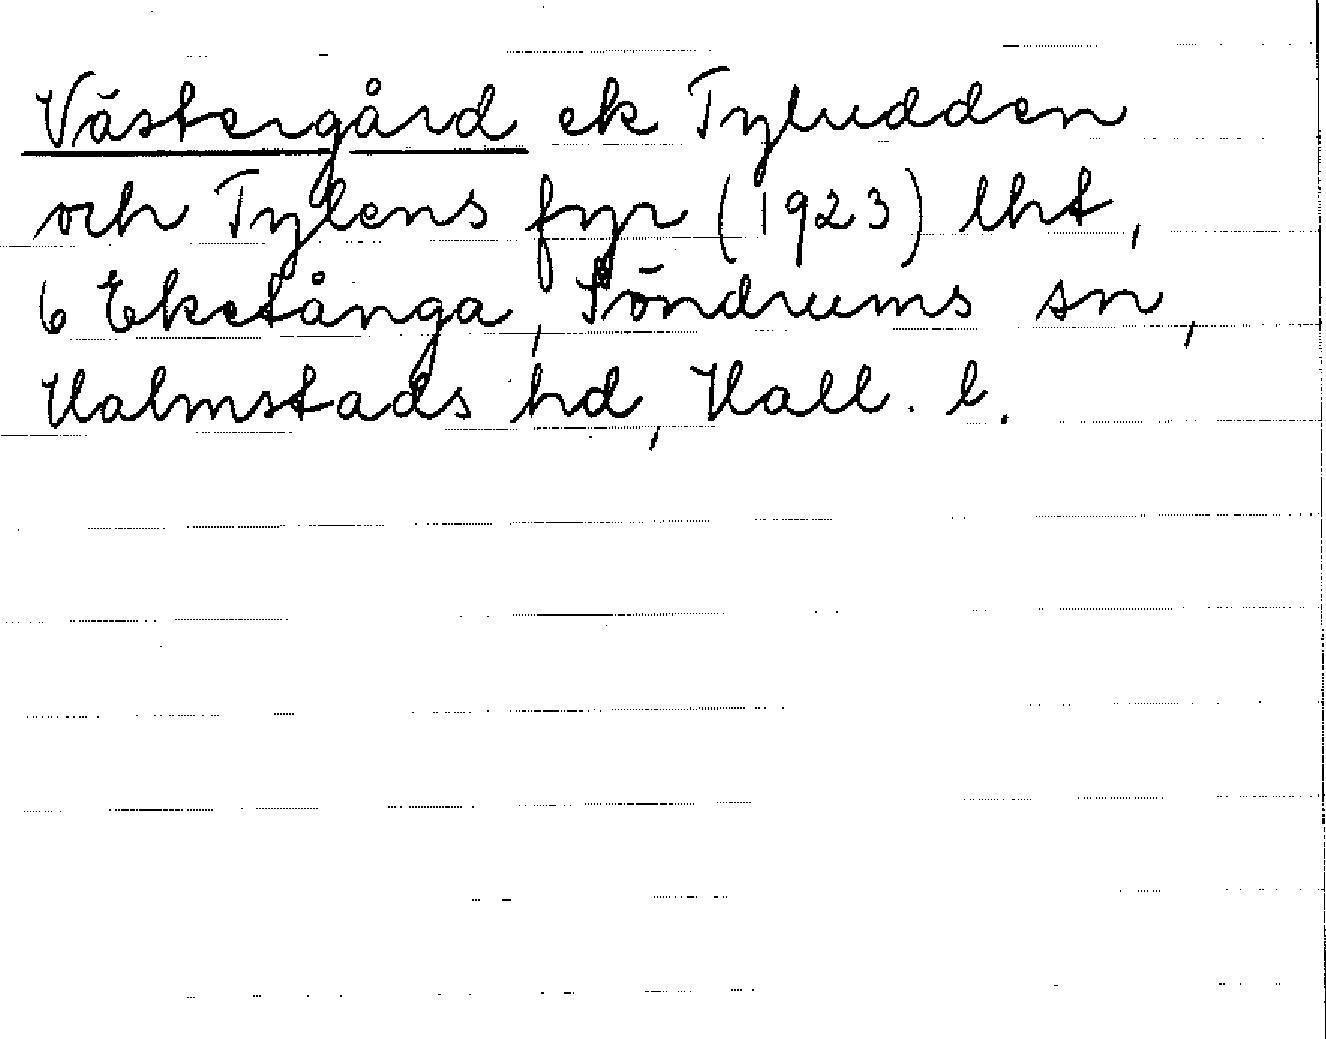 Västergård ek Tyludden
och Tylens fyr (1923) lht,
6 Eketånga, Söndrums sn,
Halmstads hd, Hall. l.